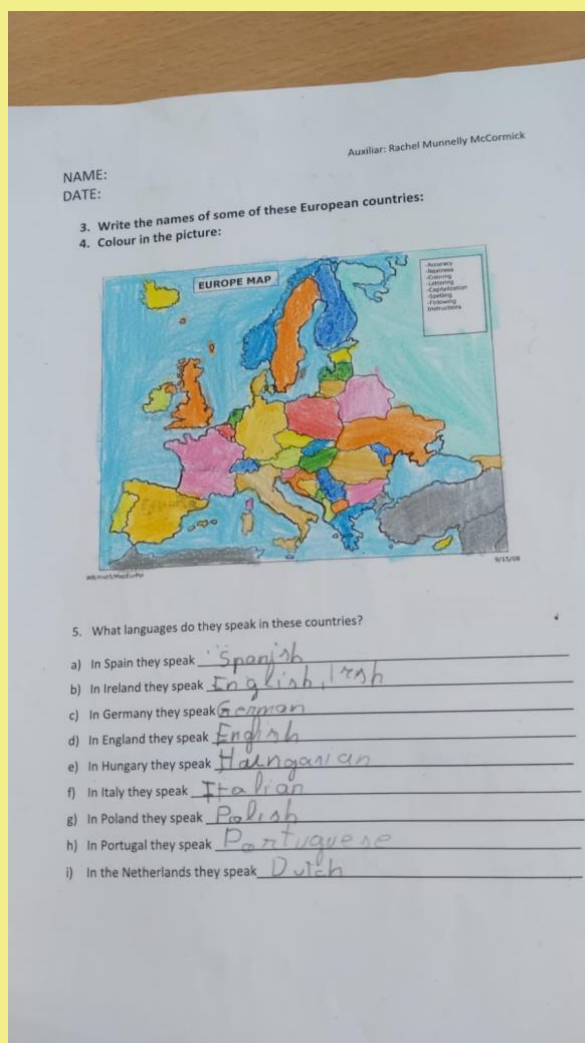 Auxiliar: Rachel Munnelly McCormick
NAME:
DATE:
3. Write the names of some of these European countries:
4. Colour in the picture:
EUROPE MAP
-Accuracy
-Neatness
-Coloring
-Lettering
-Capitalization
-Spelling
-Following
Instructions
9/15/08
5. What languages do they speak in these countries?
a) In Spain they speak Spanish
b) In Ireland they speak English, Irsh
c) In Germany they speak German
d) In England they speak English
e) In Hungary they speak Haungarian
f) In Italy they speak Italian
g) In Poland they speak Polish
h) In Portugal they speak Portuguese
i) In the Netherlands they speak Dutch